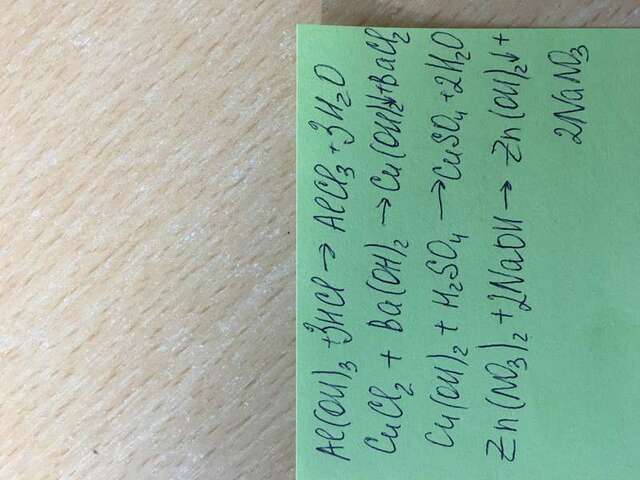 Al(OH)₃ +3HCl → AlCl₃ +3H₂O
CuCl₂ + Ba(OH)₂ → Cu(OH)₂↓+BaCl₂
Cu(OH)₂ + H₂SO₄ → CuSO₄ +2H₂O
Zn(NO₃)₂ +2NaOH → Zn(OH)₂↓ +
2NaNO₃